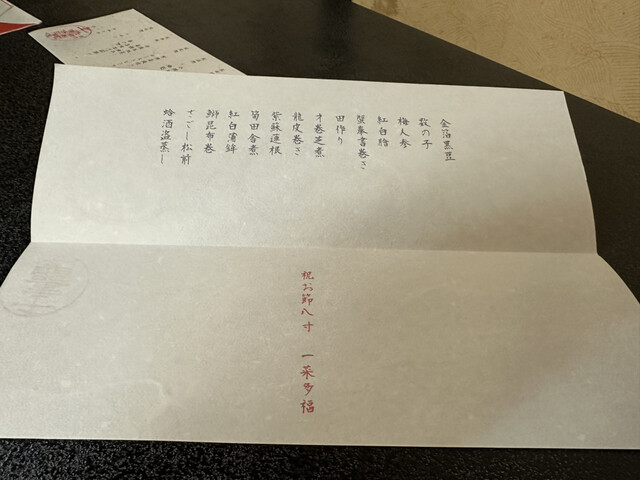 金箔黒豆
数の子
梅人参
紅白膾
蟹奉書巻き
田作り
才巻芝煮
龍皮巻き
紫蘇蓮根
筍田舎煮
紅白蒲鉾
鰤昆布巻
さごし松前
蛤酒盗蒸し
祝お節八寸 一菜多福